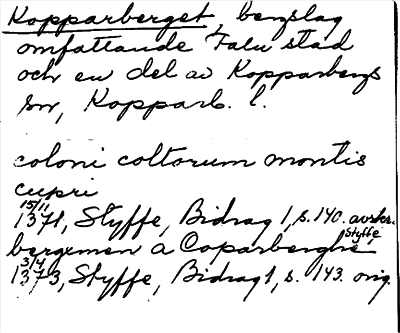 Kopparberget, bergslag
omfattande Falu stad
och en del av Kopparbergs
sn, Kopparb. l.
coloni coltorum montis
cupri
15/11
1371, Styffe, Bidrag 1, s. 140. avskr.
Styffe
bergemen a Coparberghe
3/4
1373, Styffe, Bidrag 1, s. 143. orig.